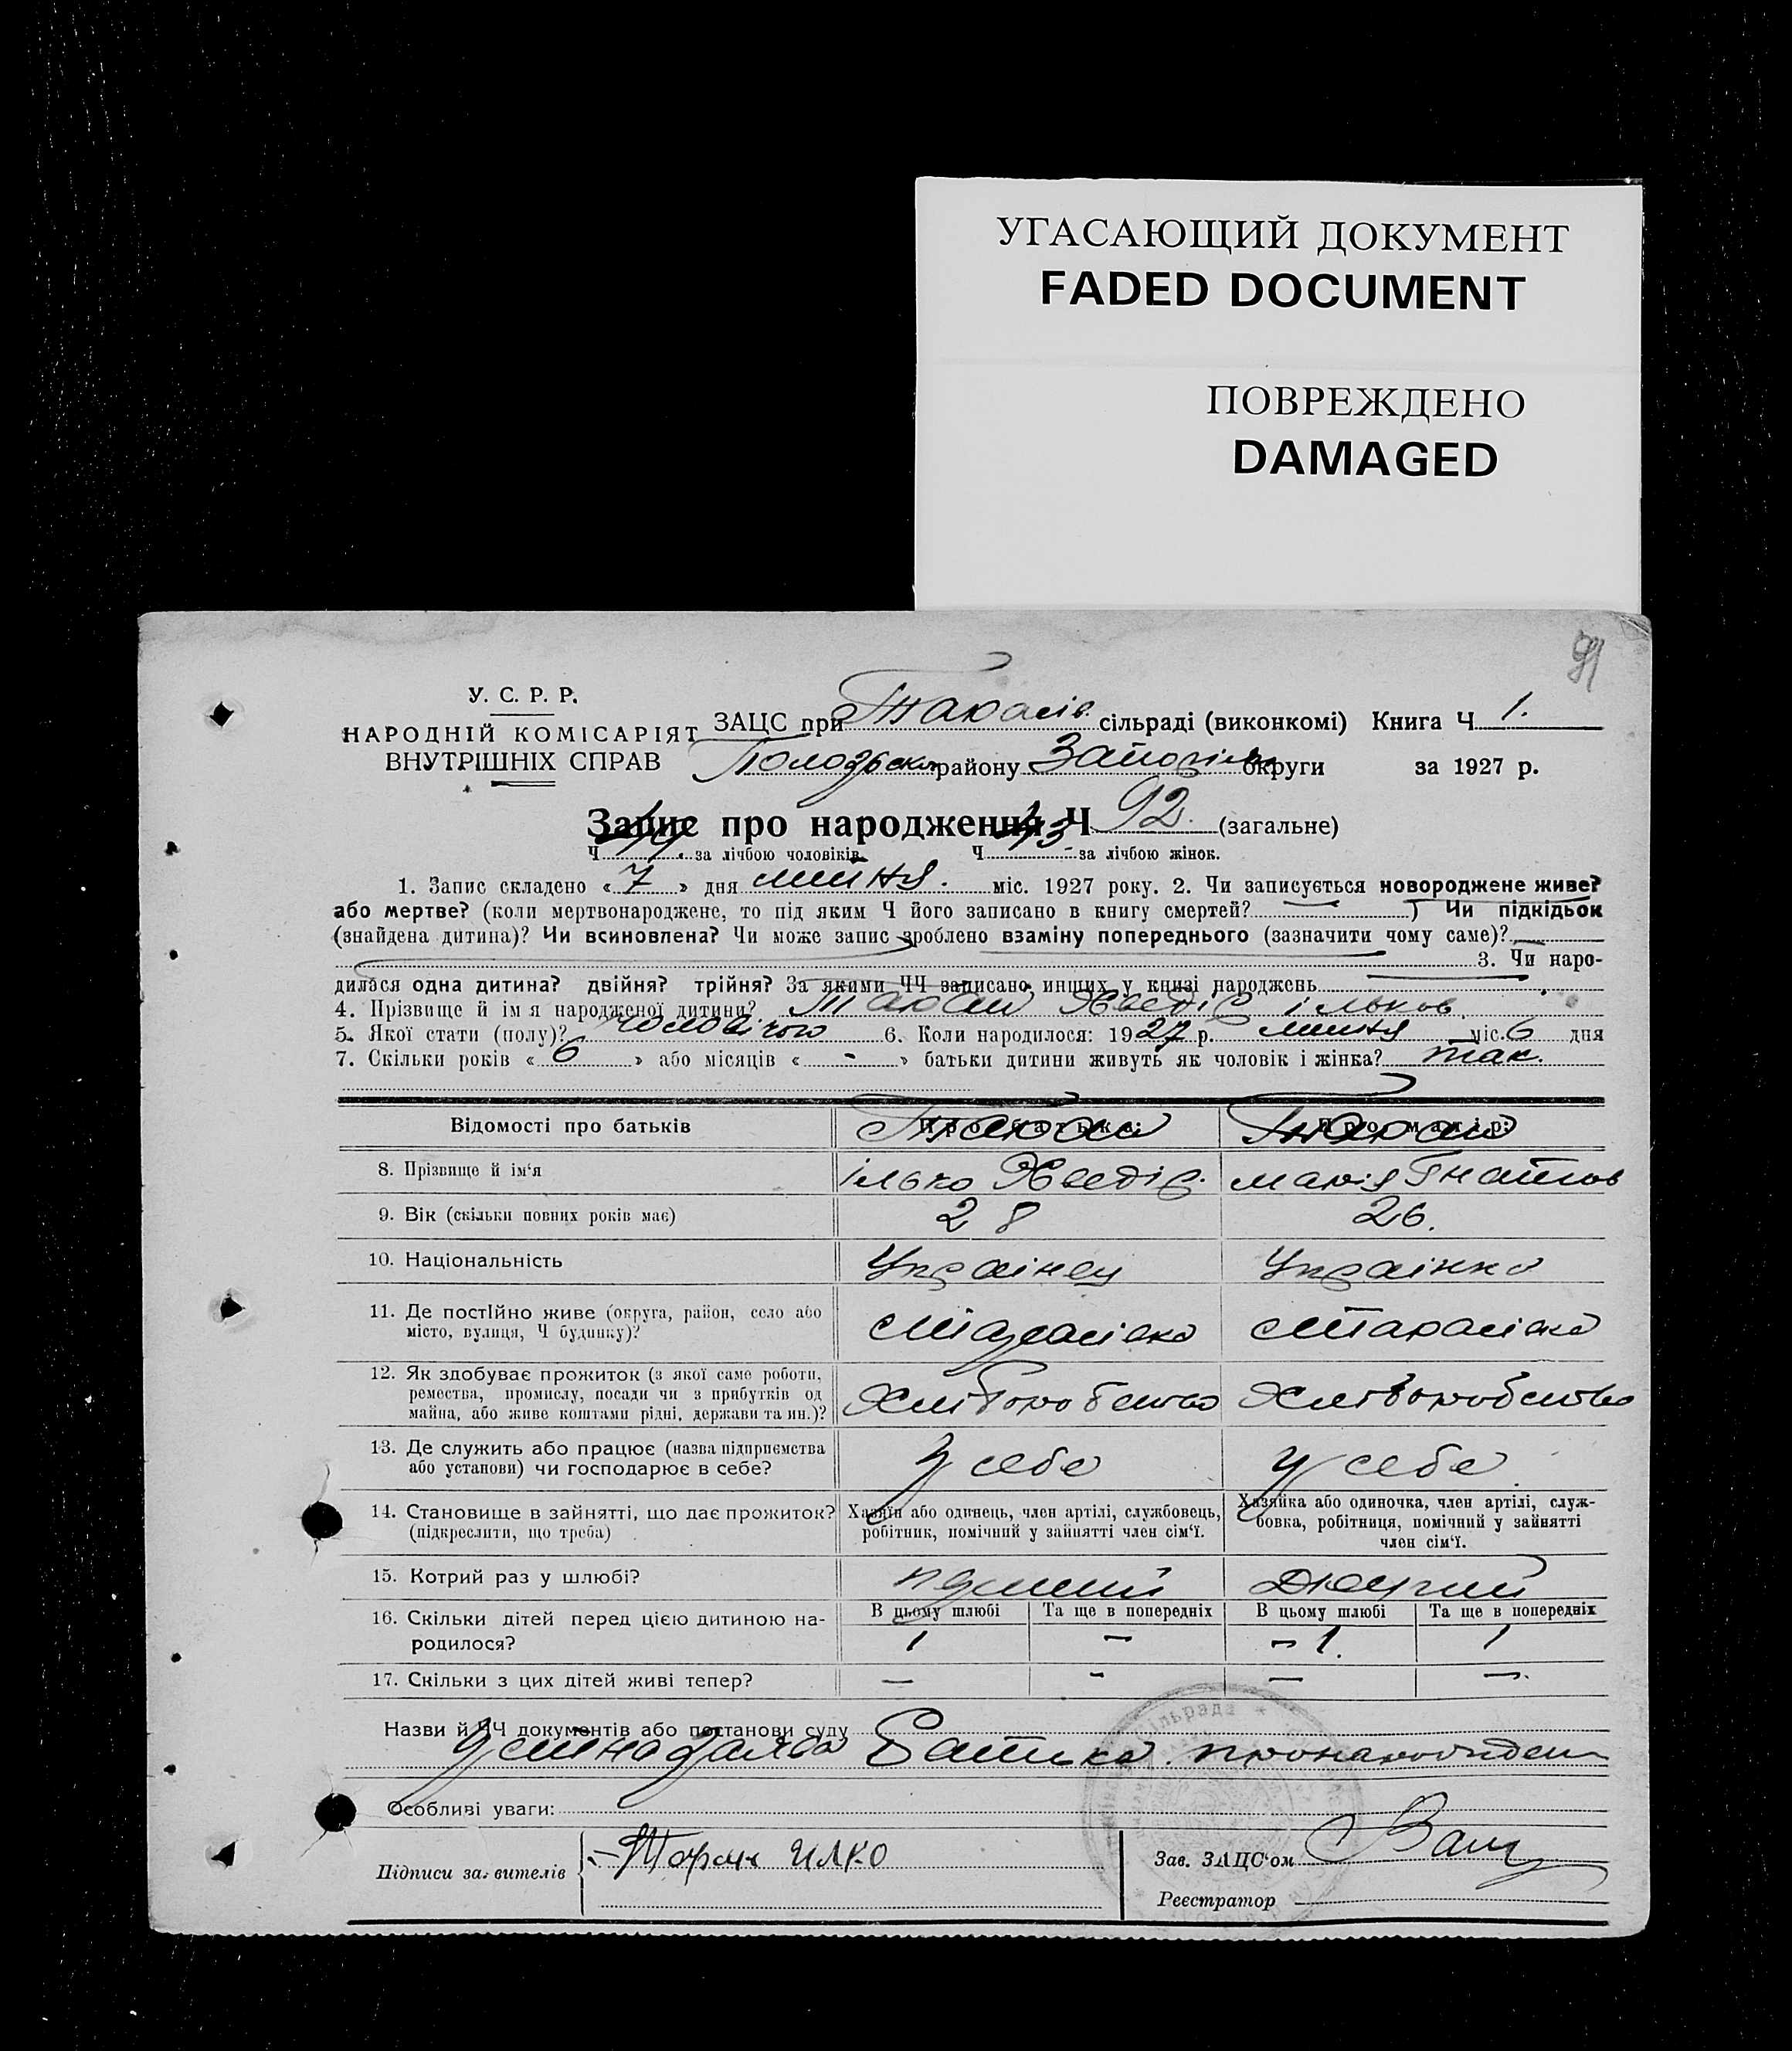 УГАСАЮЩИЙ ДОКУМЕНТ
FADED DOCUMENT
ПОВРЕЖДЕНО
DAMAGED
91
У. С. Р. Р.
НАРОДНІЙ КОМІСАРІЯТ
ВНУТРІШНІХ СПРАВ
ЗАЦС при Тарасів. сільраді (виконкомі) Книга Ч 1.
Пологівськ району Запоріжс округи за 1927 р.
Запис про народження Ч 92. (загальне)
Ч 49 за лічбою чоловіків. Ч 43 за лічбою жінок.
1. Запис складено « 7 » дня липня. міс. 1927 року. 2. Чи записується новороджене живе?
або мертве? (коли мертвонароджене, то під яким Ч його записано в книгу смертей? — ) Чи підкідьок
(знайдена дитина)? Чи всиновлена? Чи може запис зроблено взаміну попереднього (зазначити чому саме)? —
3. Чи наро-
дилася одна дитина? двійня? трійня? За якими ЧЧ записано инших у книзі народжень
4. Прізвище й ім'я народженої дитини? Таран Хведір Ільков.
5. Якої стати (полу)? чоловічого 6. Коли народилося: 1927 р. липня міс. 6 дня
7. Скільки років « 6 » або місяців « - » батьки дитини живуть як чоловік і жінка? так.
Відомості про батьків Про батька: Про матір:
Таран Таран
8. Прізвище й ім'я Ілько Хведір. Марія Гнатков
9. Вік (скільки повних років має) 28 26.
10. Національність Українец Українка
11. Де постійно живе (округа, район, село або
місто, вулиця, Ч будинку)? с Тарасівка с Тарасівка
12. Як здобуває прожиток (з якої саме роботи,
ремества, промислу, посади чи з прибутків од
майна, або живе коштами рідні, держави та ин.)? Хліборобство Хліборобство
13. Де служить або працює (назва підприємства
або установи) чи господарює в себе? У себе У себе
14. Становище в зайнятті, що дає прожиток?
(підкреслити, що треба)
Хазяїн або одинець, член артілі, службовець,
робітник, помічний у зайнятті член сім'ї.
Хазяйка або одиночка, член артілі, служ-
бовка, робітниця, помічний у зайнятті
член сім'ї.
15. Котрий раз у шлюбі? перший Другий
16. Скільки дітей перед цією дитиною на-
родилося?
В цьому шлюбі Та ще в попередніх В цьому шлюбі Та ще в попередніх
1 — - 1. 1
17. Скільки з цих дітей живі тепер? — - — —
Назви й ЧЧ документів або постанови суду
Устна заява Батька. про народжен
Особливі уваги:
Підписи заявителів Таран Илко
Зав. ЗАЦС'ом
Реєстратор